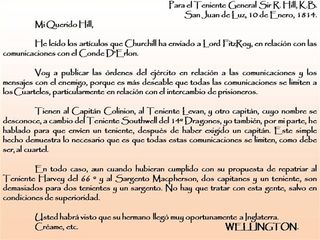 Para el Teniente General Sir R. Hill, K.B.
San Juan de Luz, 10 de Enero, 1814.
Mi Querido Hill,
He leído los artículos que Churchill ha enviado a Lord FitzRoy, en relación con las
comunicaciones con el Conde D'Erlon.
Voy a publicar las órdenes del ejército en relación a las comunicaciones y los
mensajes con el enemigo, porque es más deseable que todas las comunicaciones se limiten a
los Cuarteles, particularmente en relación con el intercambio de prisioneros.
Tienen al Capitán Colinion, al Teniente Levan, y otro capitán, cuyo nombre se
desconoce, a cambio del Teniente Southwell del 14º Dragones, yo también, por mi parte, he
hablado para que envíen un teniente, después de haber exigido un capitán. Este simple
hecho demuestra lo necesario que es que todas estas comunicaciones se limiten, como debe
ser, al cuartel.
En todo caso, aun cuando hubieran cumplido con su propuesta de repatriar al
Teniente Harvey del 66 º y al Sargento Macpherson, dos capitanes y un teniente, son
demasiados para dos tenientes y un sargento. No hay que tratar con esta gente, salvo en
condiciones de superioridad.
Usted habrá visto que su hermano llegó muy oportunamente a Inglaterra.
Créame, etc.
WELLINGTON.